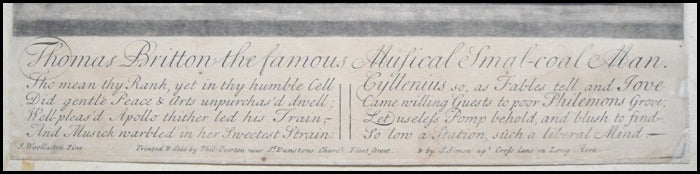 Thomas Britton the famous Musical Smal-coal Man.
Tho mean thy Rank, yet in thy humble Cell
Did gentle Peace & Arts unpurchas'd dwell;
Well pleas'd Apollo thither led his Train,
And Musick warbled in her Sweetest Strain.
Cyllenius so, as Fables tell, and Jove
Came willing Guests to poor Philemons Grove;
Let useless Pomp behold, and blush to find
So low a Station, such a liberal Mind
J. Woollaston Pinx Printed & Sold by Phil: Overton near St. Dunstons Church Fleet street. & by J. Simon agt. Cross lane in Long Acre